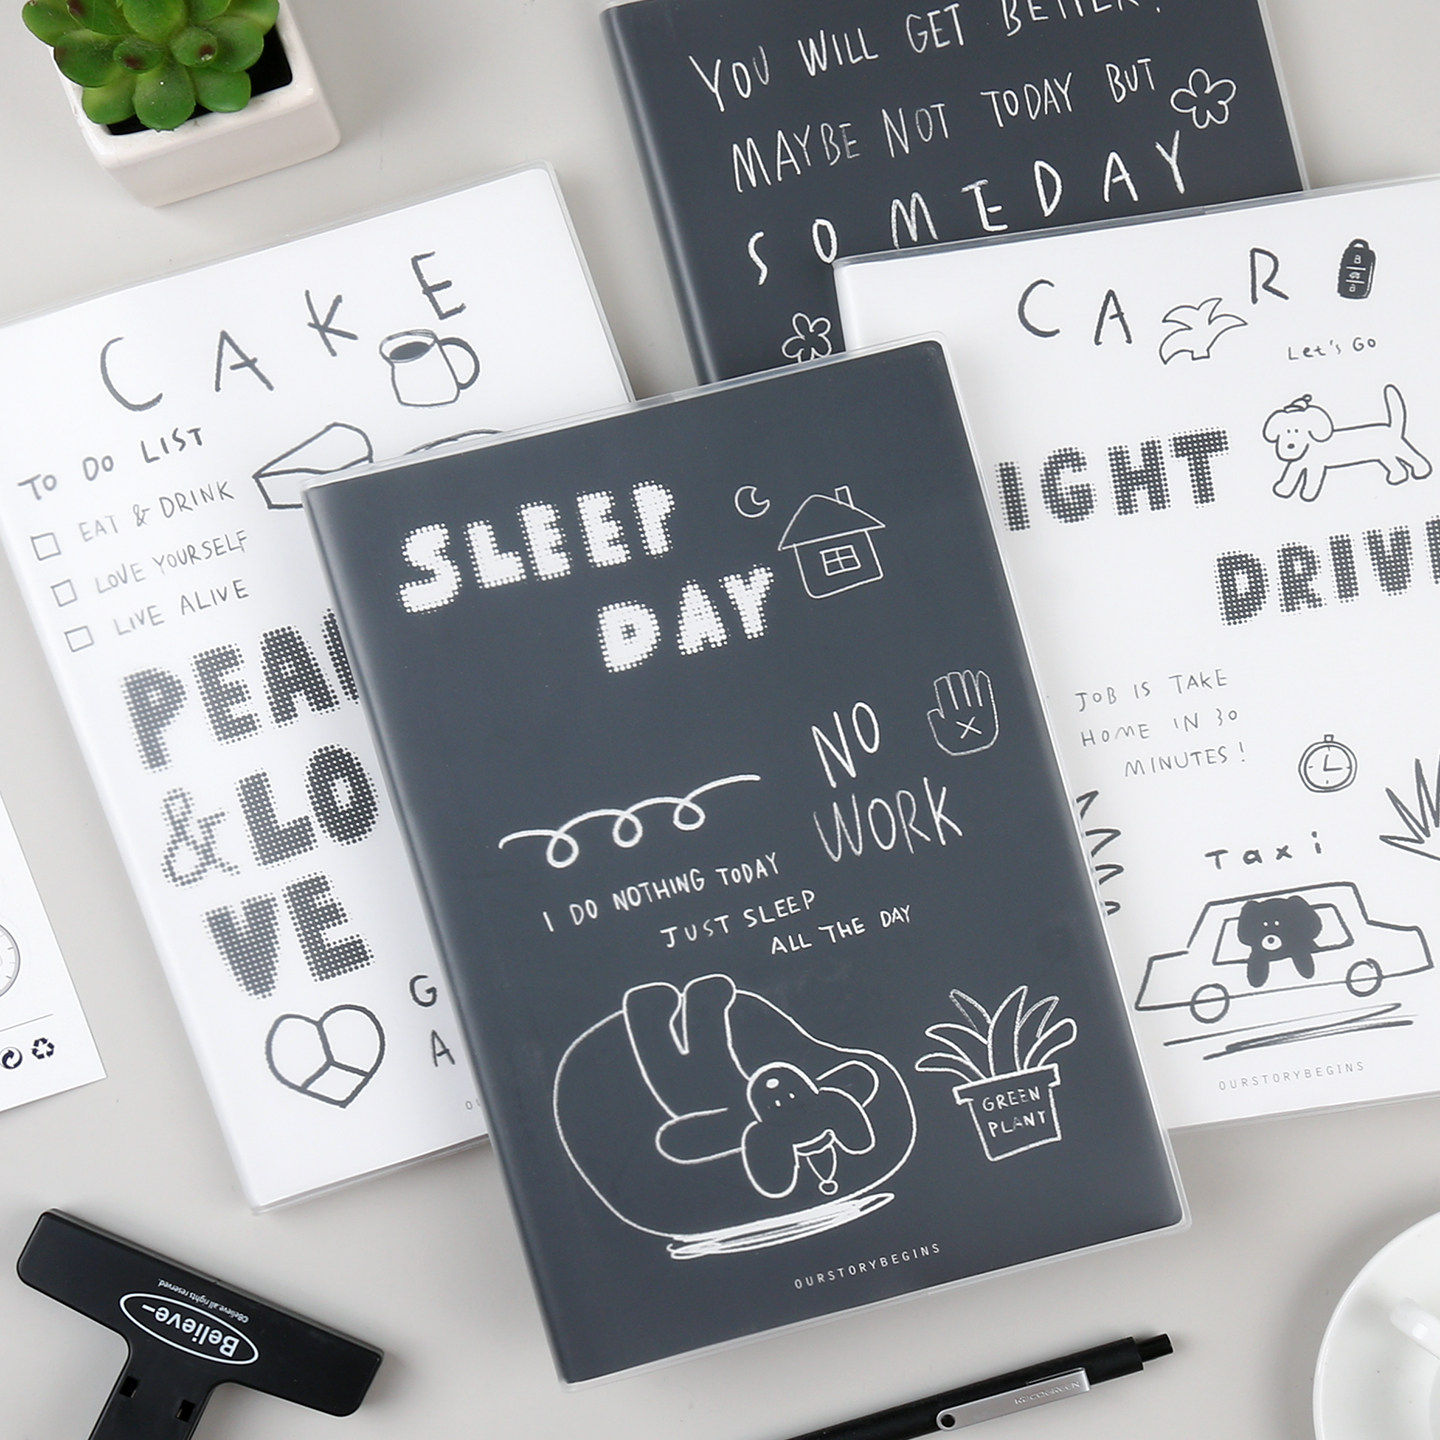 YOU WILL GET BETTER!
MAYBE NOT TODAY BUT
SOMEDAY
CAKE
TO DO LIST
EAT & DRINK
LOVE YOURSELF
LIVE ALIVE
&LO
VE
G
A
SLEEP
DAY
NO
WORK
I DO NOTHING TODAY
JUST SLEEP
ALL THE DAY
GREEN
PLANT
OURSTORYBEGINS
CAR
Let's Go
IGHT
DRIV
JOB IS TAKE
HOME IN 30
MINUTES!
Taxi
OURSTORYBEGINS
Believe-
©Believe.all rights reserved.